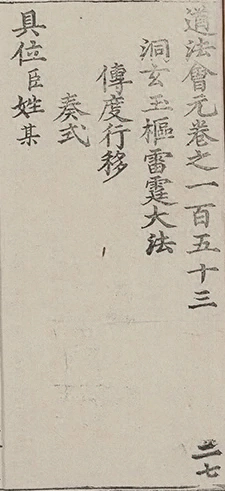 道法會元卷之一百五十三
洞玄玉樞雷霆大法
傳度行移
奏式
具位臣姓某
二七